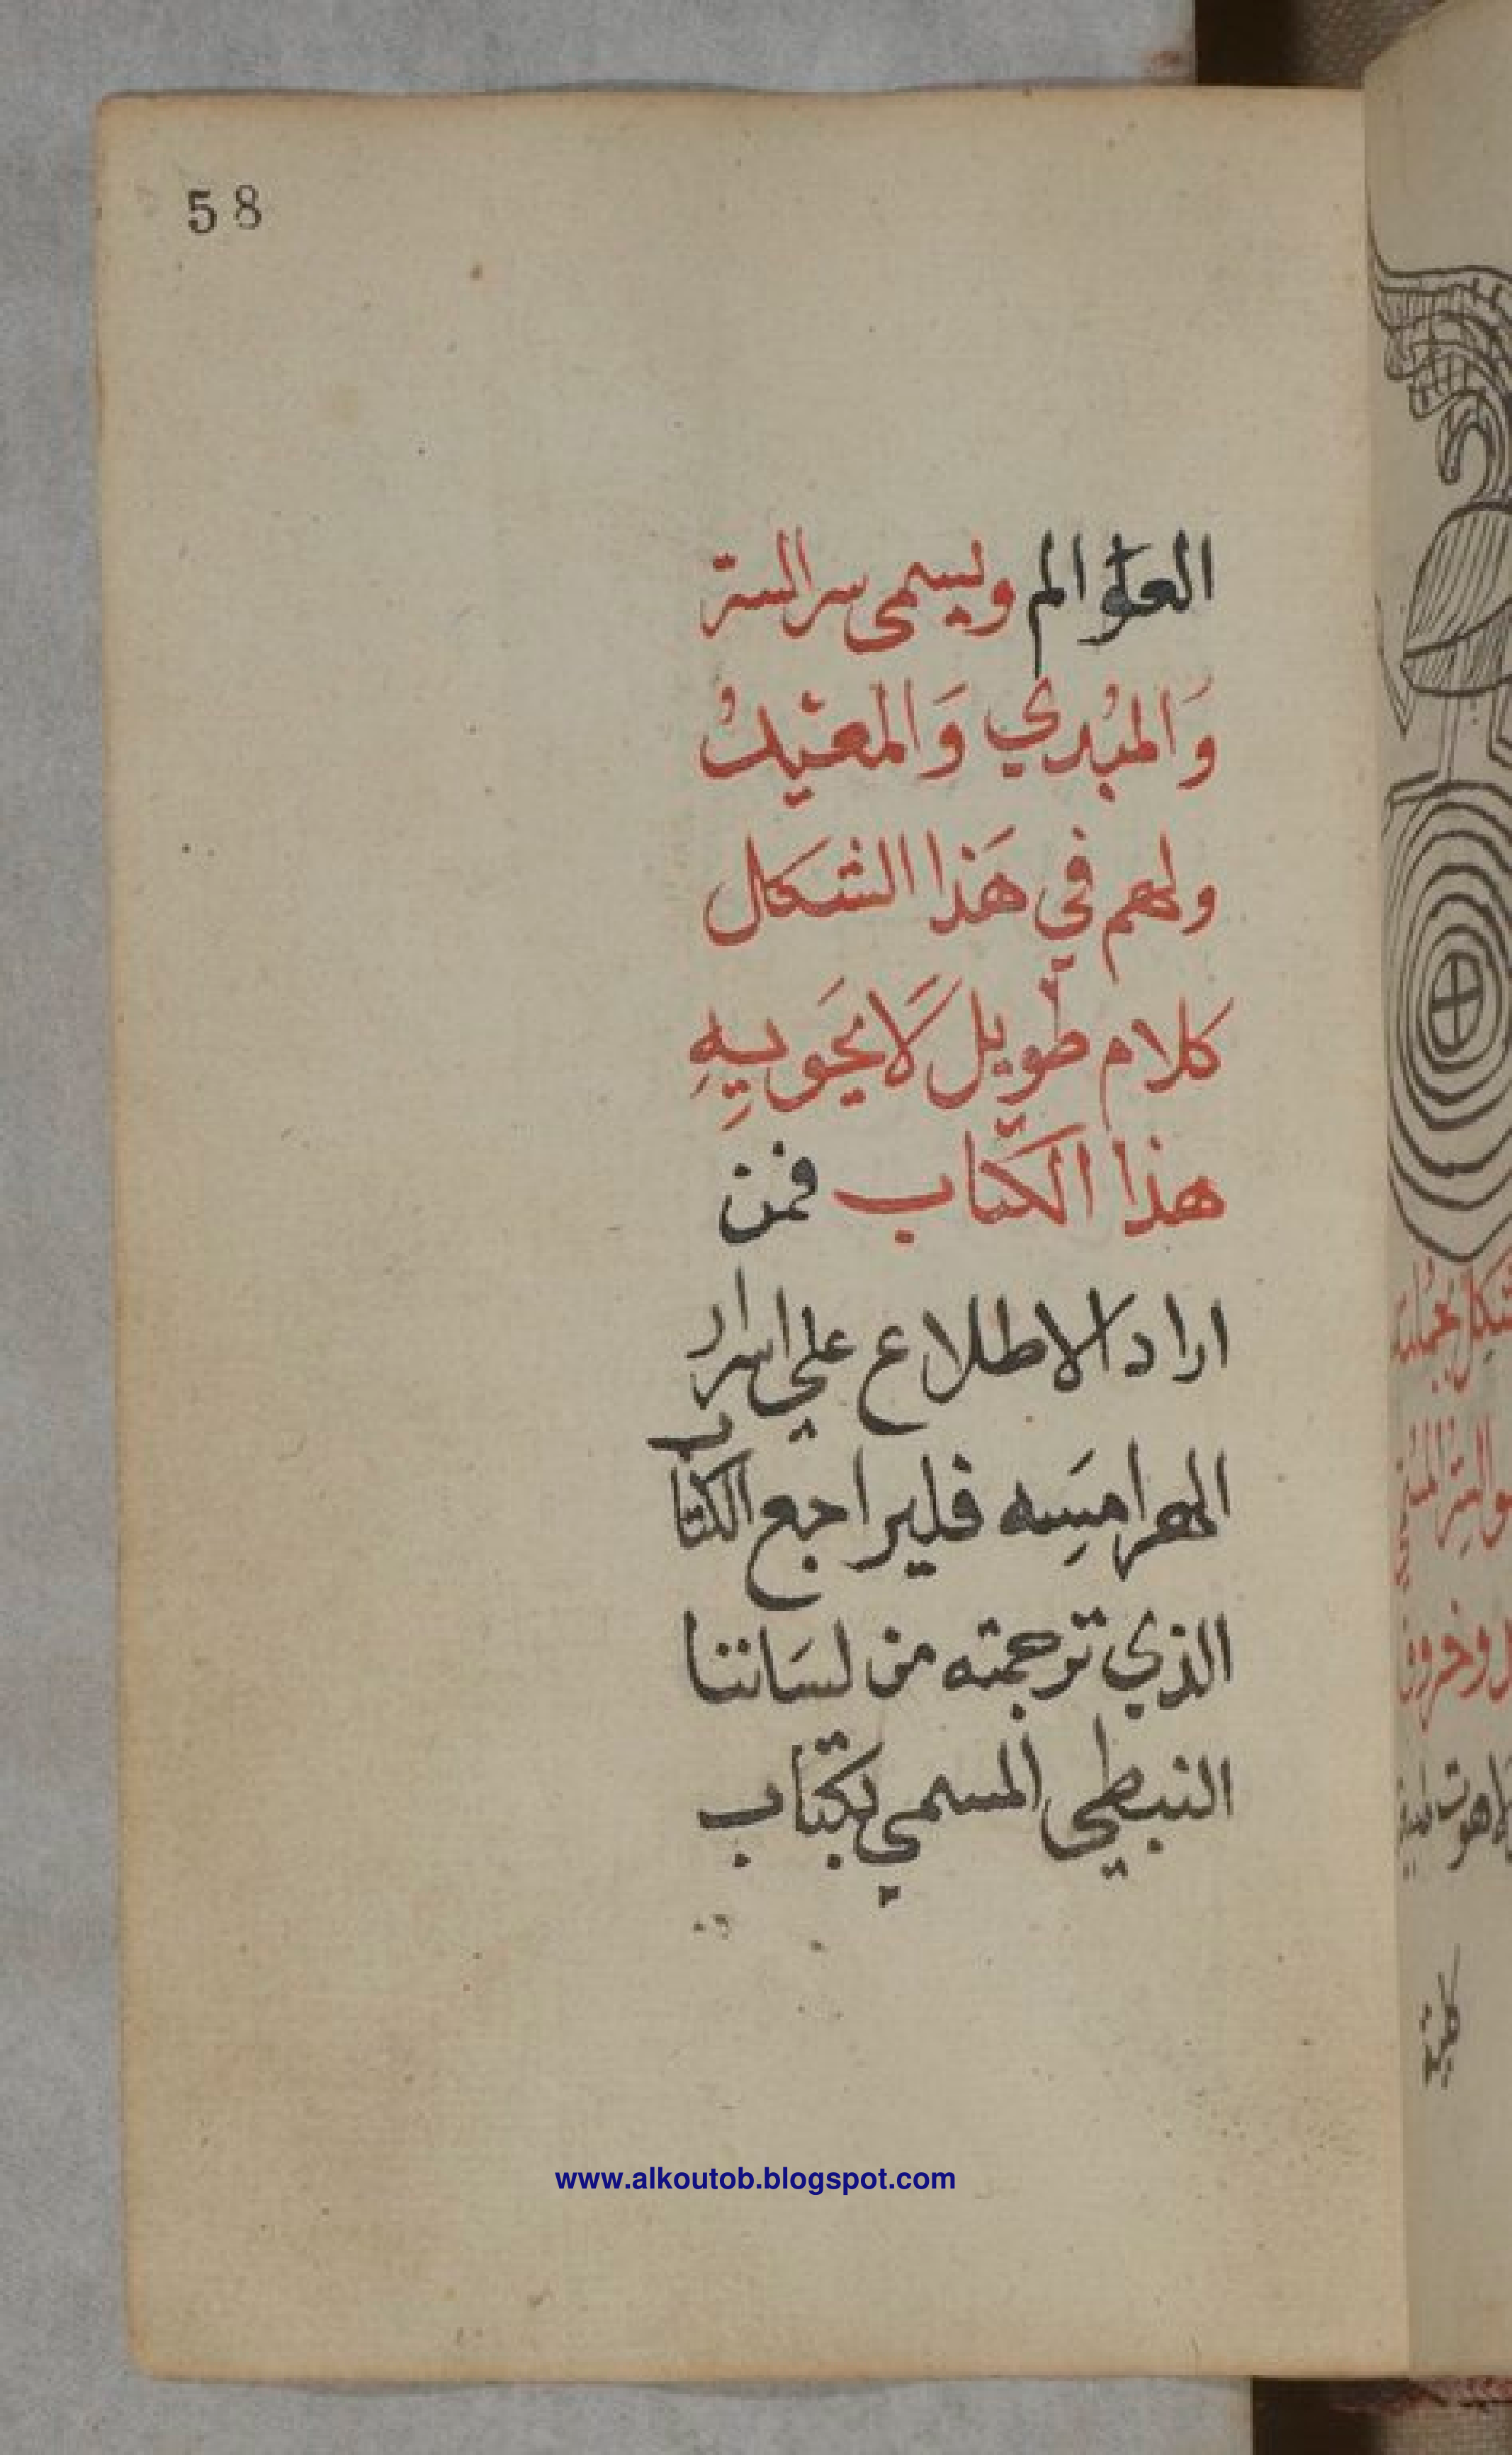 58
العوالم ويسمى سر السر
وَالمبُدي وَالمعيدُ
ولهم في هَذا الشكل
كلام طويل لَا يحَويهِ
هذا الكتاب فمن
اراد الاطلاع علي اسرار
الهرامِسَه فليراجع الكتاب
الذي ترجمته من لسَاننا
النبطي المسمي بكتاب
www.alkoutob.blogspot.com